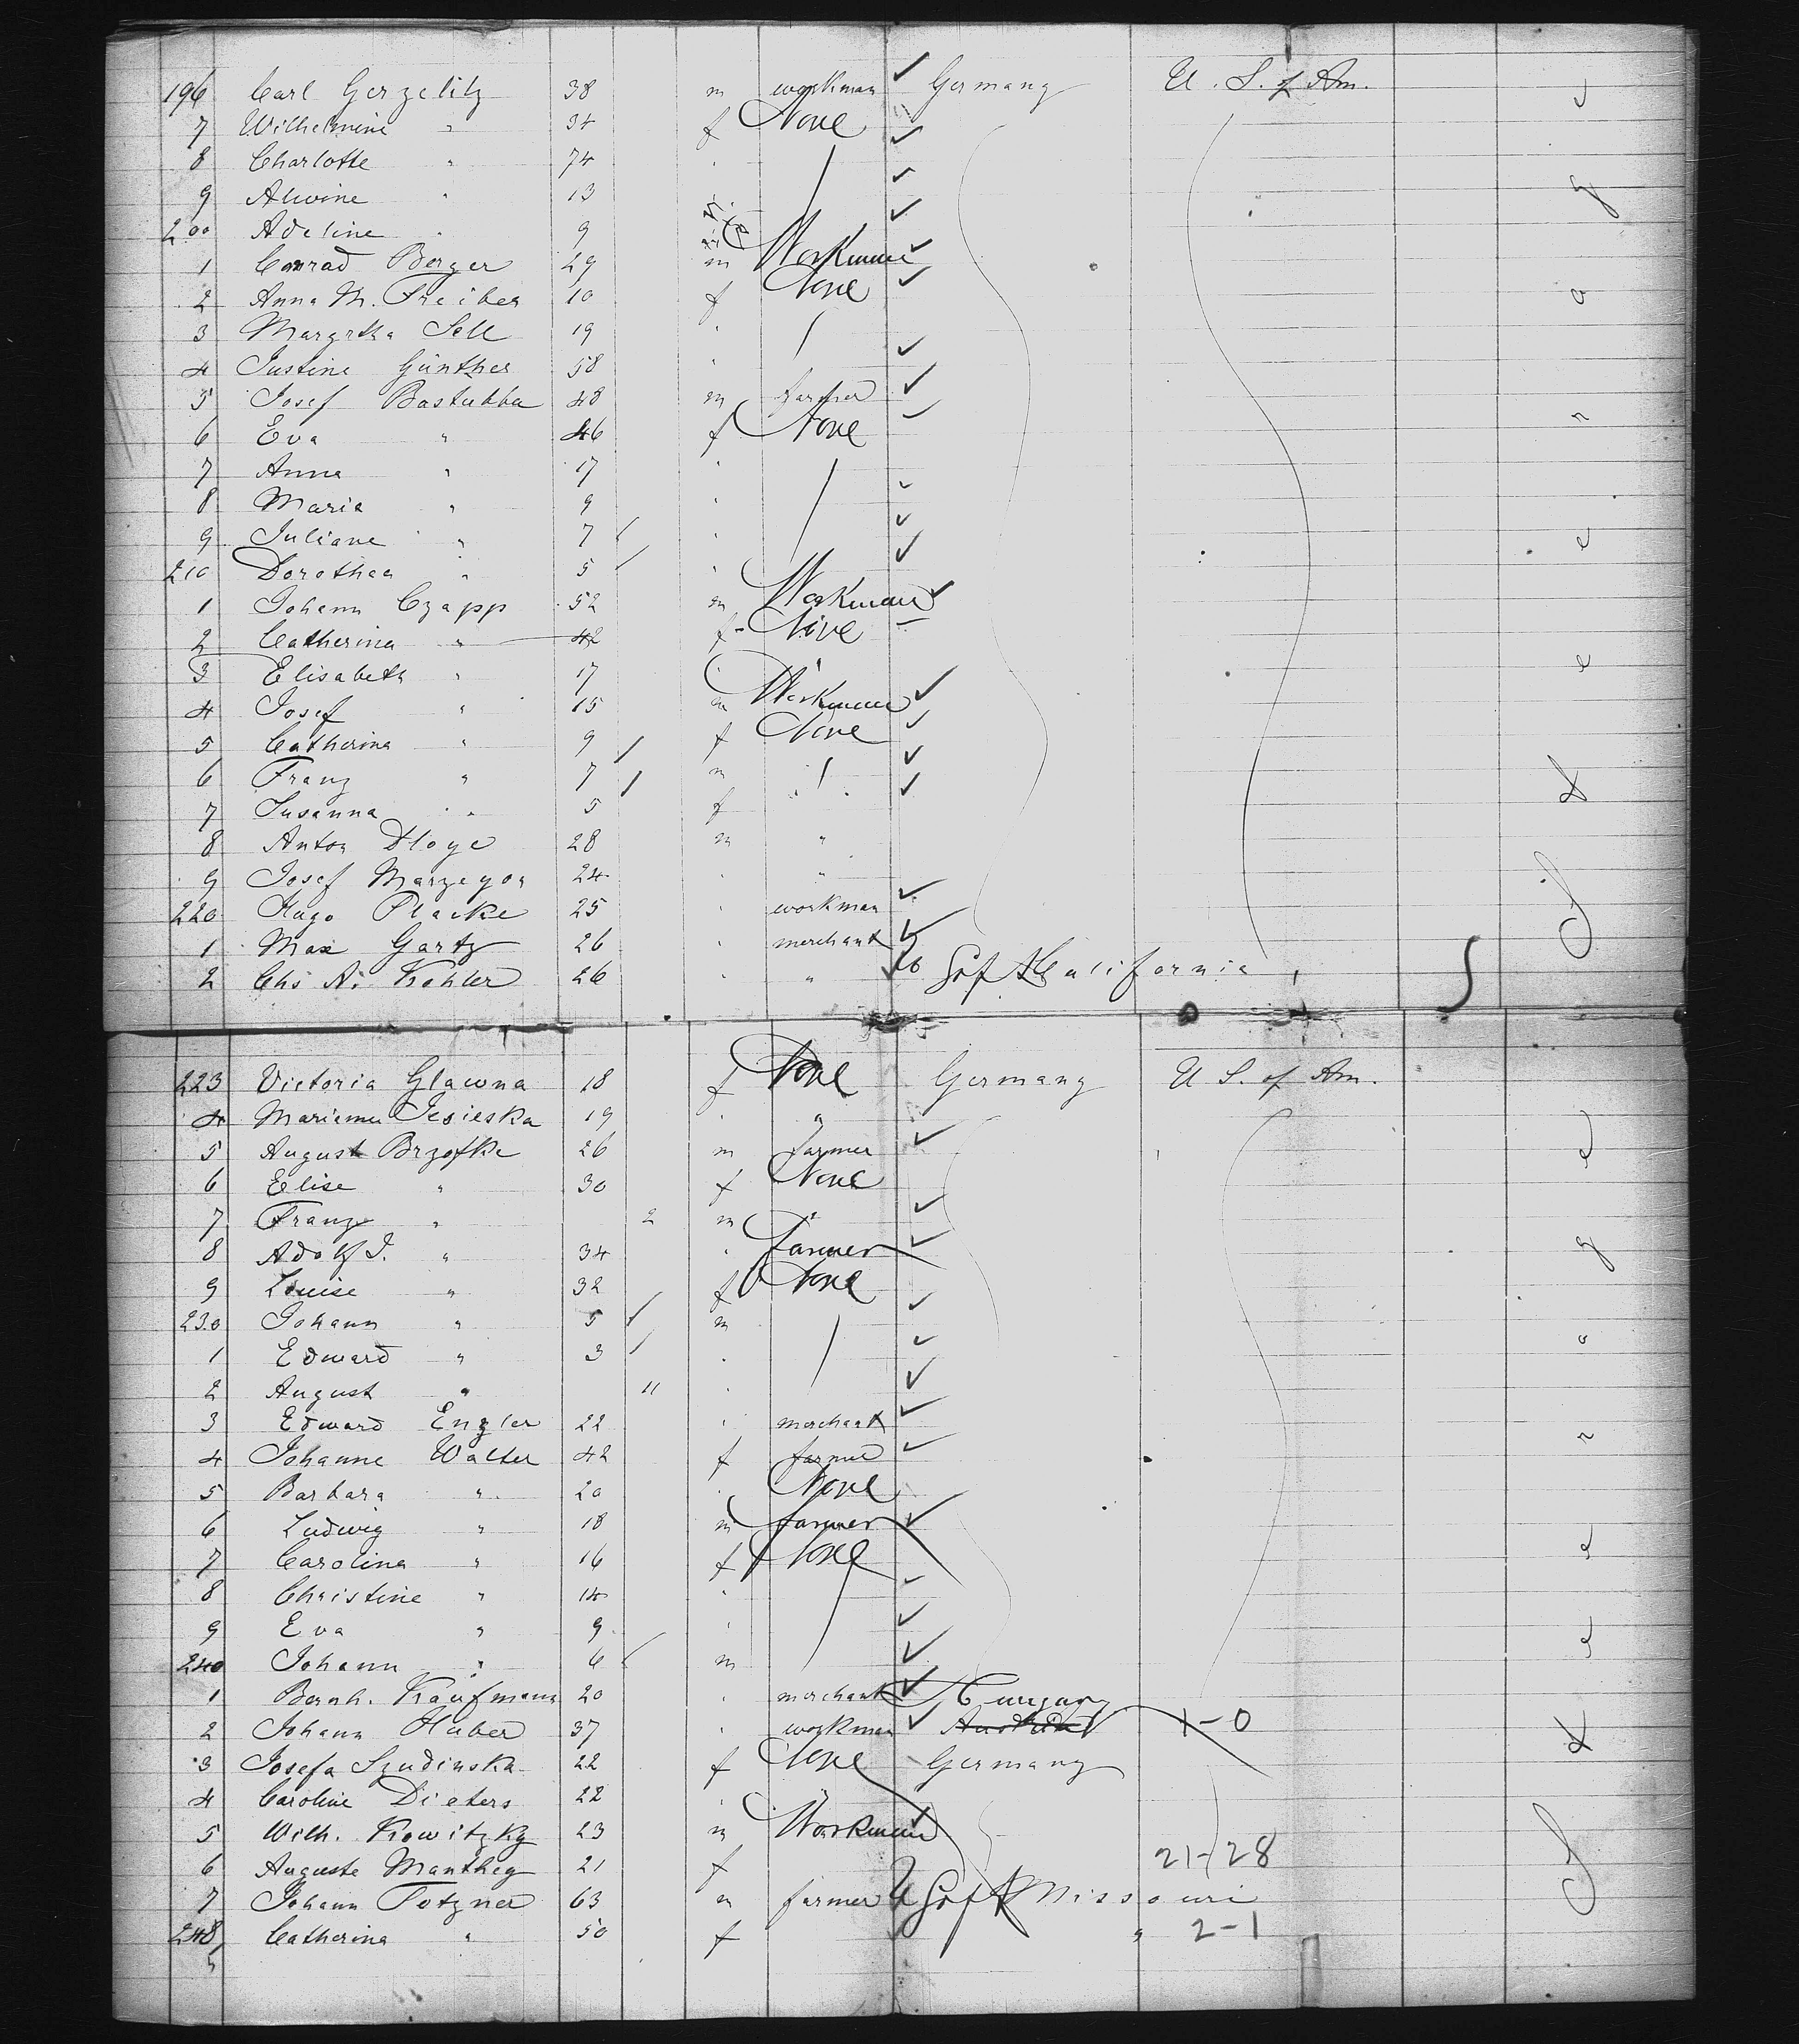 196 Carl Gerzelitz 38 m workman Germany U. S. of Am.
7 Wilhelmine " 34 f None
8 Charlotte " 74 "
9 Alwine " 13
200 Adeline " 9
1 Conrad Berger 29 m Workman
2 Anna M. Treiber 10 f None
3 Margretha Sell 19 "
4 Justine Günther 58 "
5 Josef Bastubba 48 m farmer
6 Eva " 46 f None
7 Anna " 17 "
8 Maria " 9 "
9 Juliane " 7 "
210 Dorothea " 5 "
1 Johann Czapp 52 m Workman
2 Catherina " 42 f None
3 Elisabeth " 17 " "
4 Josef " 15 m Workman
5 Catherina " 9 f None
6 Franz " 7 m
7 Susanna " 5 f
8 Anton Dloge 28 m "
9 Josef Marzegon 24 " "
220 Hugo Placke 25 " workman
1 Max Gartz 26 " merchant
2 Chs A. Kohler 26 " " California
223 Victoria Glawna 18 f None Germany U S. of Am.
4 Jesieska 19 " "
5 August Brzofke 26 m farmer
6 Elise " 30 f None
7 Franz " 2 m "
8 Adolf J. " 34 " farmer
9 Louise " 32 f None
230 Johann " 5 m
1 Edward " 3 "
2 August " 11 "
3 Edward Engler 22 " merchant
4 Johanne Walter 42 f farmer
5 Barbara " 20 " None
6 Ludwig " 18 m farmer
7 Carolina " 16 f None
8 Christine " 14 "
9 Eva " 9 "
240 Johann " 6 m
1 Bernh. Kaufmann 20 " merchant
2 Johann Huber 37 " workman Austria 1-0
3 Josefa Szudinska 22 f None Germany
4 Caroline Dieters 22 " "
5 Wilh. Kowitzky 23 m Workman
6 Auguste Manthey 21 f 21-28
7 Johann Totzner 63 m farmer Missouri
248 Catherina " 50 f " 2-1